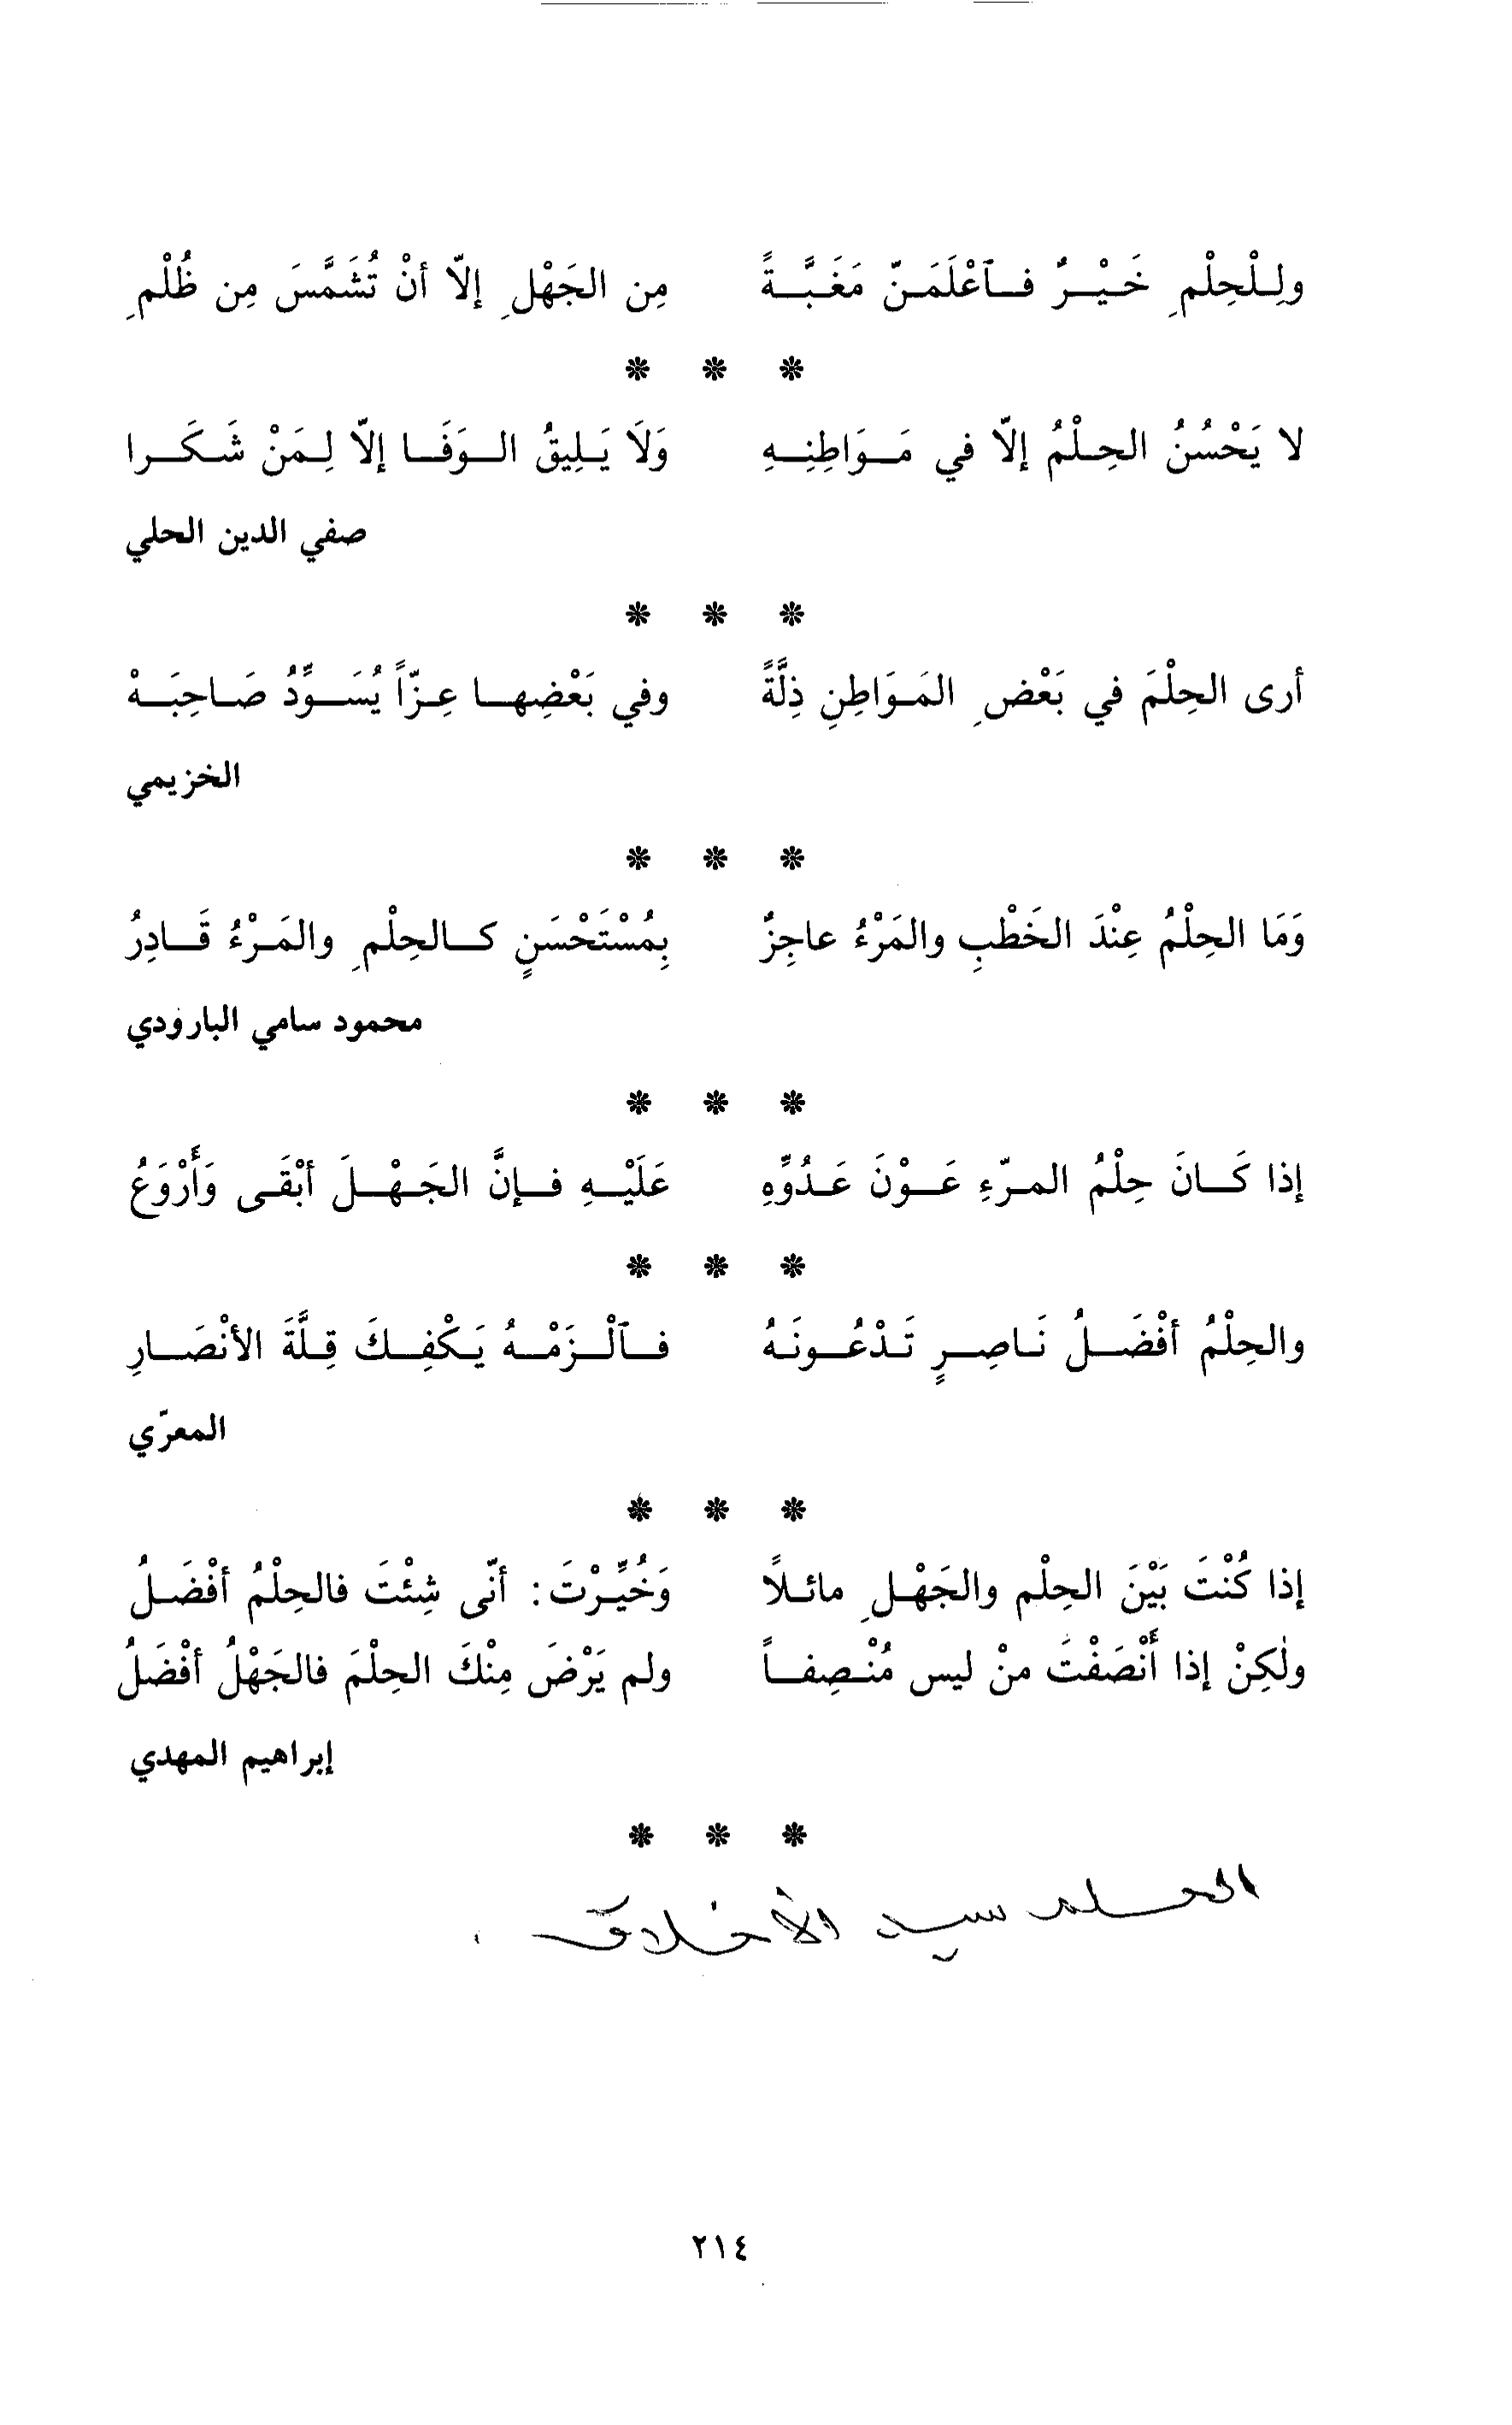 ولِلْحِلْمِ خَيْرٌ فَآعْلَمَنّ مَغَبَّةً مِن الجَهْلِ إلاّ أنْ تُشَمَّسَ مِن ظُلْمِ
* * *
لا يَحْسُنُ الحِلْمُ إلاّ في مَوَاطِنِهِ وَلَا يَلِيقُ الوَفَا إلاّ لِمَنْ شَكَرا
صفي الدين الحلي
* * *
أرى الحِلْمَ في بَعْضِ المَوَاطِنِ ذِلَّةً وفي بَعْضِها عِزّاً يُسَوِّدُ صَاحِبَهْ
الخزيمي
* * *
وَمَا الحِلْمُ عِنْدَ الخَطْبِ والمَرْءُ عاجِزٌ بِمُسْتَحْسَنٍ كالحِلْمِ والمَرْءُ قَادِرُ
محمود سامي البارودي
* * *
إذا كَانَ حِلْمُ المرّءِ عَوْنَ عَدُوِّهِ عَلَيْهِ فإنَّ الجَهْلَ أبْقَى وَأَرْوَعُ
* * *
والحِلْمُ أفْضَلُ نَاصِرٍ تَدْعُونَهُ فَآلْزَمْهُ يَكْفِكَ قِلَّةَ الأنْصَارِ
المعرّي
* * *
إذا كُنْتَ بَيْنَ الحِلْم والجَهْلِ مائلاً وَخُيِّرْتَ: أنّى شِئْتَ فالحِلْمُ أفْضَلُ
ولٰكِنْ إذا أَنْصَفْتَ منْ ليس مُنْصِفاً ولم يَرْضَ مِنْكَ الحِلْمَ فالجَهْلُ أفْضَلُ
إبراهيم المهدي
* * *
الحلم سيد الأخلاق .
٢١٤